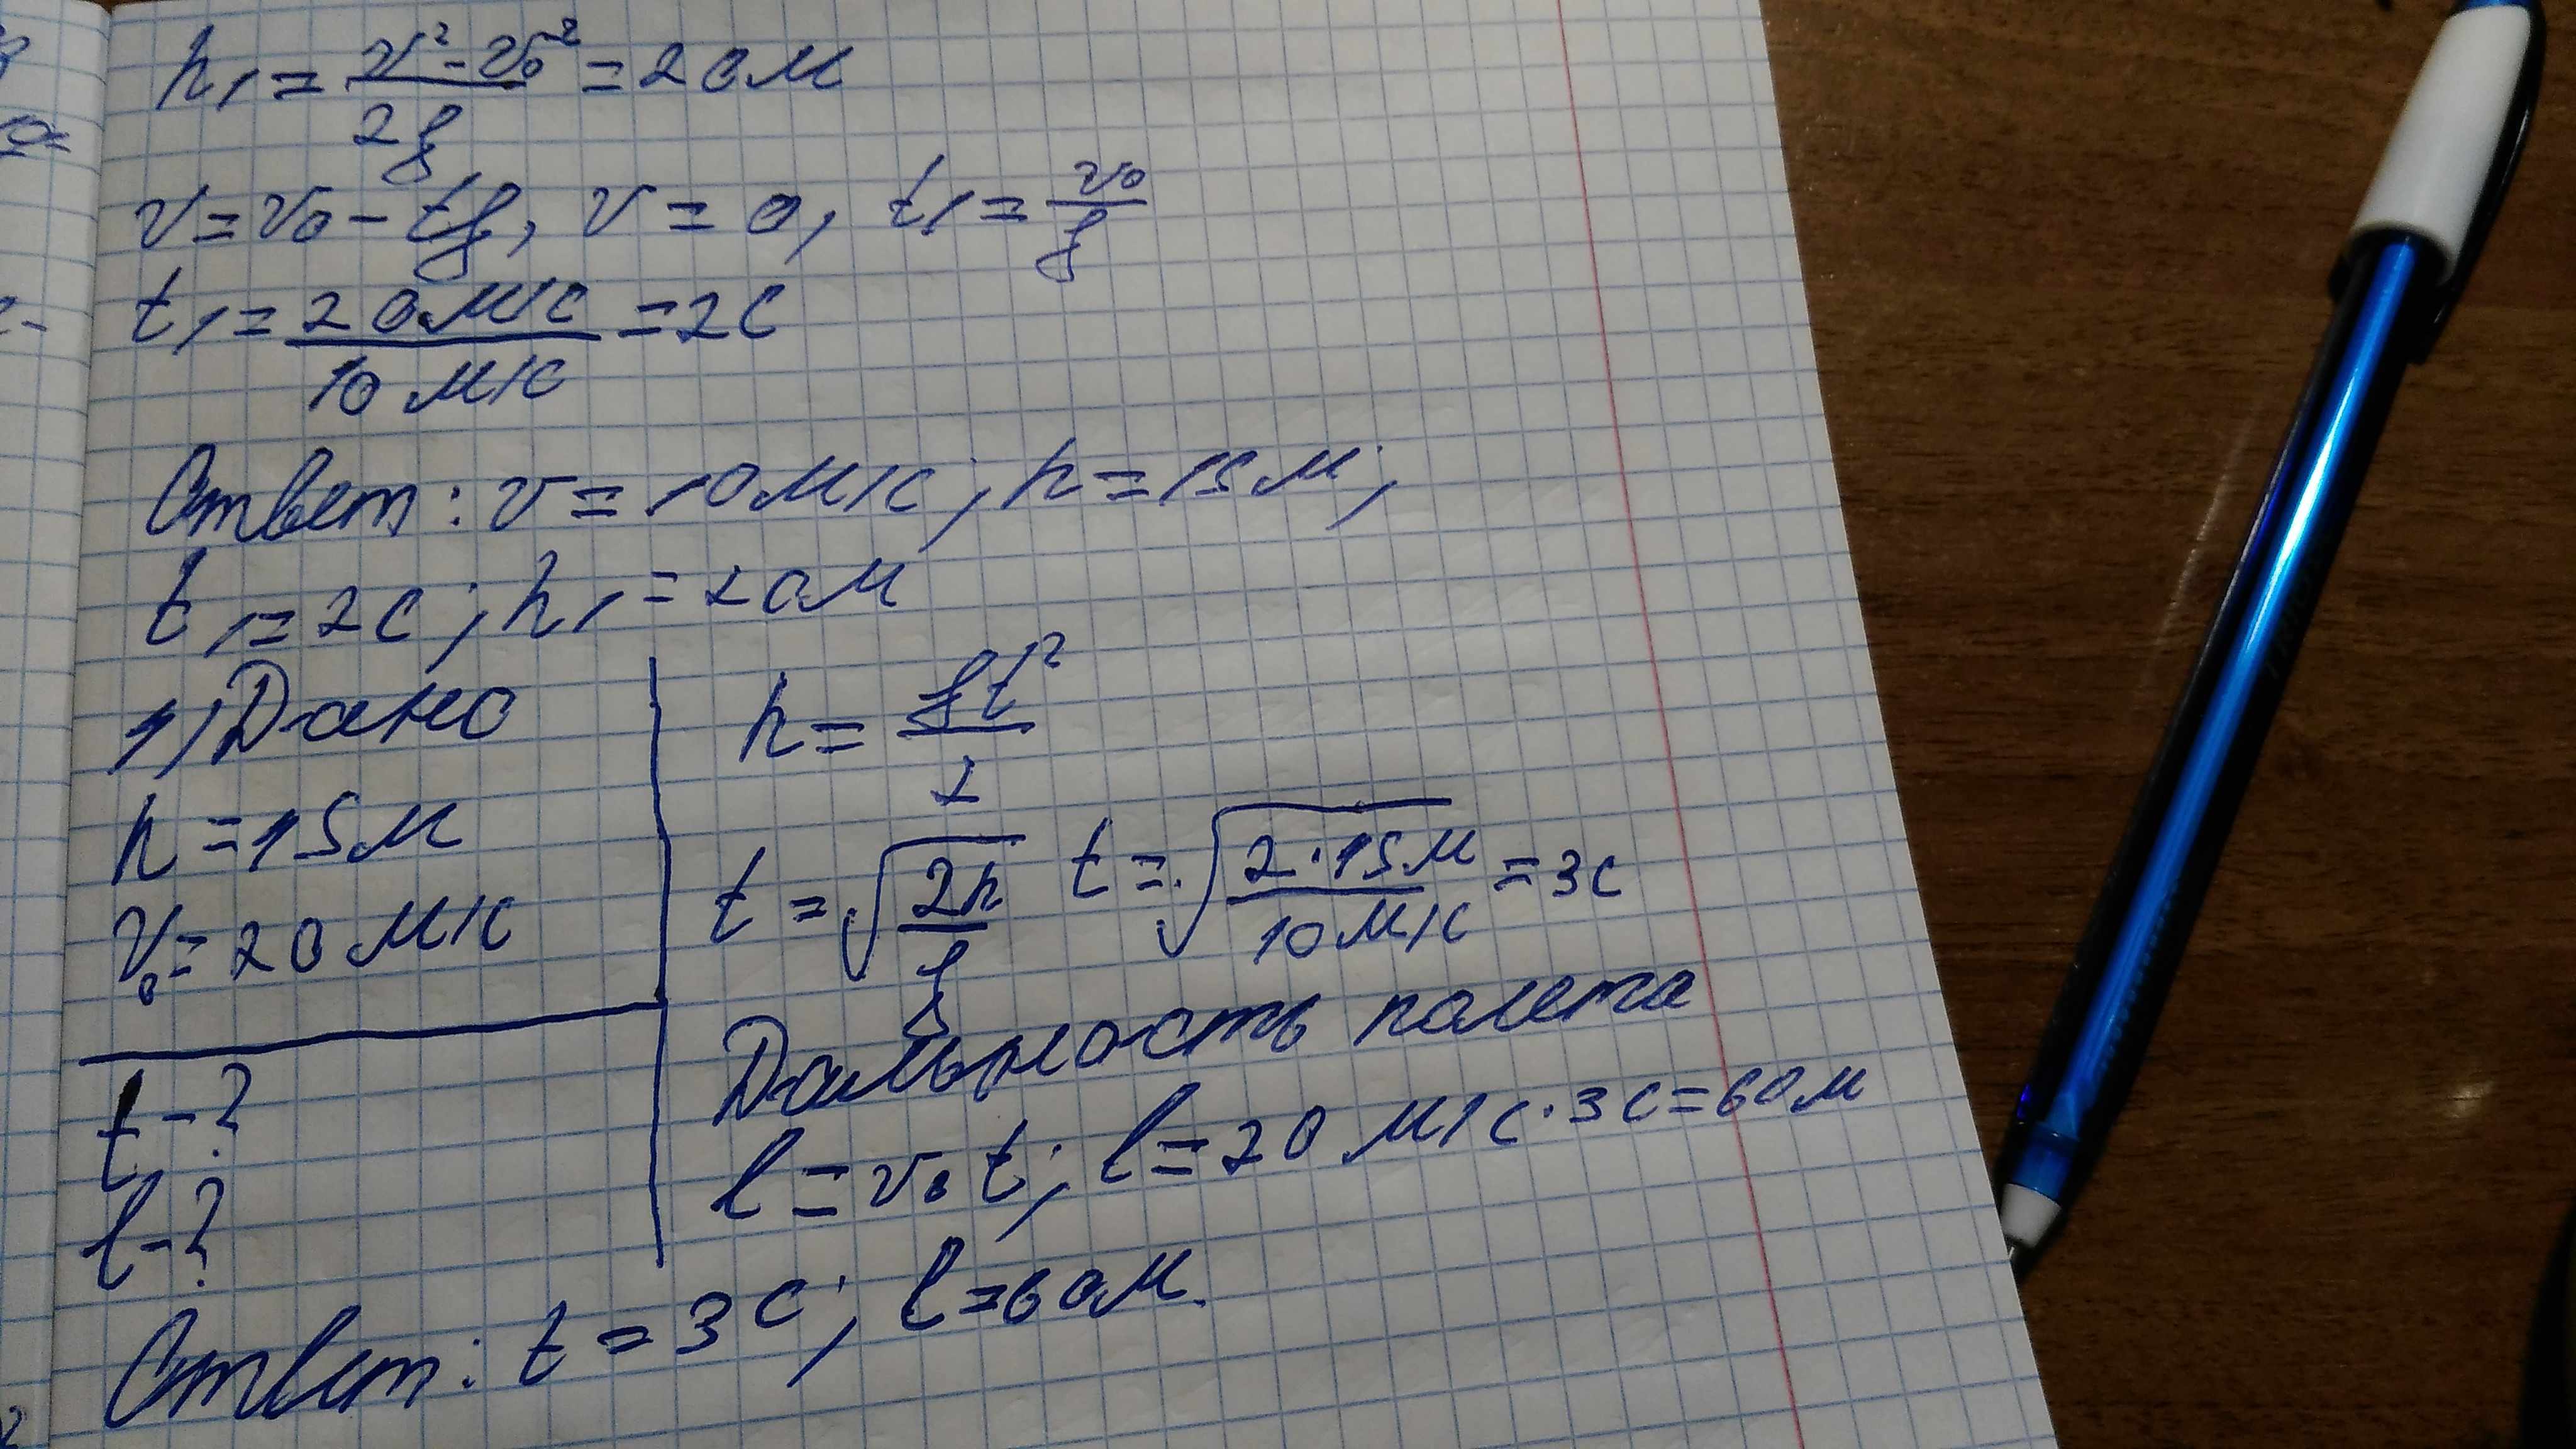 h₁ = (v² - v₀²)/2g = 20 м
v = v₀ - tg, v = 0, t₁ = v₀/g
t₁ = 20 м/с / 10 м/с = 2 с
Ответ: v = 10 м/с; h = 15 м;
t₁ = 2 с; h₁ = 20 м
1) Дано
h = 15 м
v₀ = 20 м/с
t - ?
l - ?
h = gt²/2
t = √(2h/g) t = √(2·15 м / 10 м/с) = 3 с
Дальность полета
l = v₀t; l = 20 м/с · 3 с = 60 м
Ответ: t = 3 с; l = 60 м.